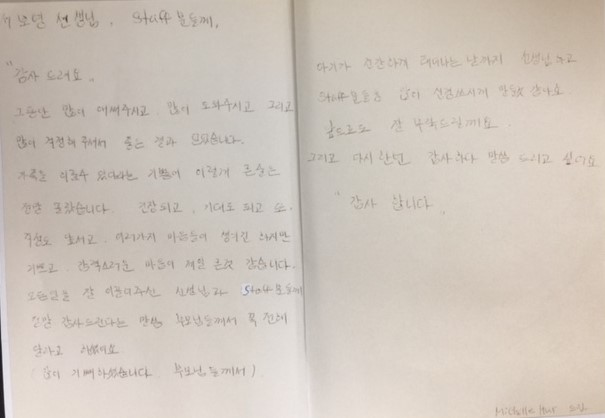 선생님, Staff 분들께,
"감사 드려요.
그동안 많이 도와주시고 그리고
많이 걱정해 주셔서 좋은 결과
가족을 이룰수 있다라는 기쁨이 이렇게 큰줄은
정말 몰랐습니다. 긴장되고, 기대도 되고 또.
여러가지 마음들이 생기긴 하지만
기쁘고, 감격스러운 마음이 제일 큰것 같습니다.
모든일을 잘 이끌어주신 선생님과 Staff분들께
정말 감사드린다는 말씀 부모님들께서 꼭 전해
달라고 하셨어요
많이 기뻐하셨습니다 부모님들께서)
아기가 건강하게 태어나는 날까지 선생님하고
staff분들을 많이 신경쓰시게 만들것 같아요.
앞으로도 잘 부탁드릴께요.
그리고 다시한번 감사하다 말씀 드리고 싶어요
"감사 합니다.
Michelle Hur